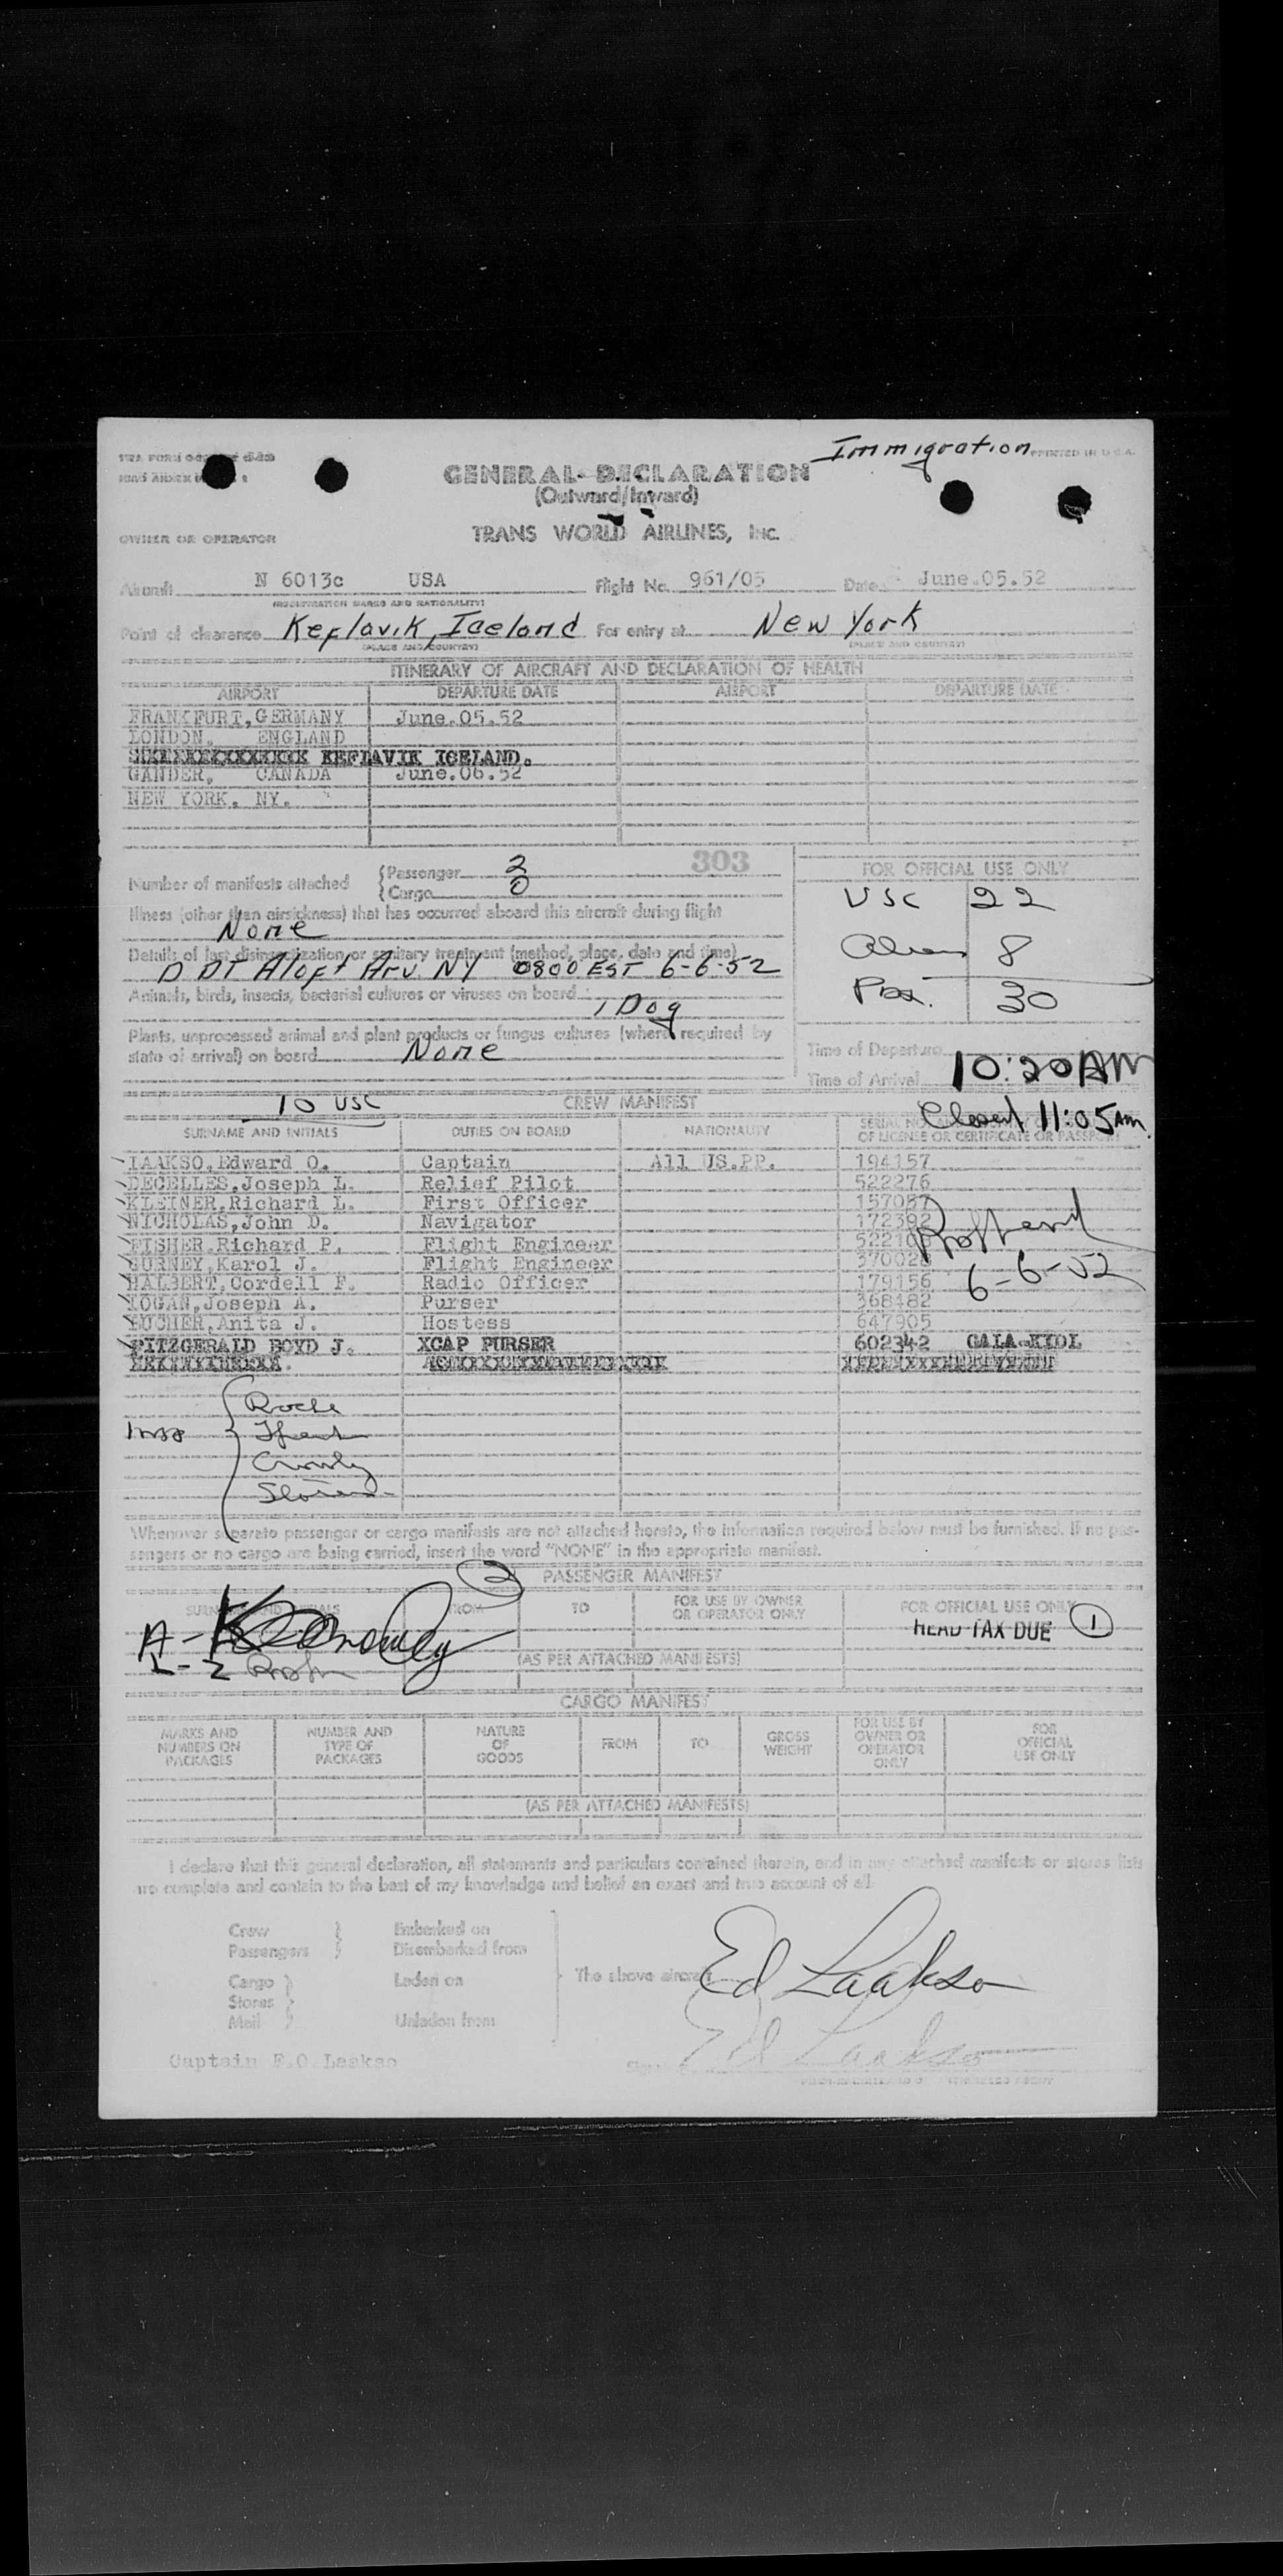 Immigration PRINTED IN U.S.A.
TWA FORM
GENERAL DECLARATION
(Outward/Inward)
OWNER OR OPERATOR TRANS WORLD AIRLINES, Inc.
Aircraft N 6013c USA Flight No. 961/05 Date June.05.52
(REGISTRATION MARKS AND NATIONALITY)
Point of clearance Keflavik, Iceland For entry at New York
(PLACE AND COUNTRY) (PLACE AND COUNTRY)
ITINERARY OF AIRCRAFT AND DECLARATION OF HEALTH
AIRPORT DEPARTURE DATE AIRPORT DEPARTURE DATE
FRANKFURT, GERMANY June.05.52
LONDON, ENGLAND
KEFLAVIK ICELAND.
GANDER, CANADA June.06.52
NEW YORK. NY.
303
Number of manifests attached {Passenger 2
{Cargo 0
FOR OFFICIAL USE ONLY
USC 22
Alien 8
Pax. 30
Illness (other than airsickness) that has occurred aboard this aircraft during flight
None
Details of last disinsectization or sanitary treatment (method, place, date and time)
DDT Aloft Arv NY 0800 EST 6-6-52
Animals, birds, insects, bacterial cultures or viruses on board 1 Dog
Plants, unprocessed animal and plant products or fungus cultures (where required by
state of arrival) on board None
Time of Departure
Time of Arrival 10:20 AM
Closed 11:05 AM.
10 USC CREW MANIFEST
SURNAME AND INITIALS DUTIES ON BOARD NATIONALITY SERIAL NO.
OF LICENSE OR CERTIFICATE OR PASSPORT
LAAKSO, Edward O. Captain All US.PP. 194157
DECELLES, Joseph L. Relief Pilot 522276
KLEINER, Richard L. First Officer 157057
NICHOLAS, John D. Navigator 172392
FISHER, Richard P. Flight Engineer
GURNEY, Karol J. Flight Engineer
HALBERT, Cordell F. Radio Officer 179156
LOGAN, Joseph A. Purser 368482
BUCHER, Anita J. Hostess 647905
6-6-52
FITZGERALD BOYD J. XCAP PURSER 602342
Roche
Whenever separate passenger or cargo manifests are not attached hereto, the information required below must be furnished. If no pas-
sengers or no cargo are being carried, insert the word "NONE" in the appropriate manifest.
PASSENGER MANIFEST
SURNAME AND INITIALS FROM TO FOR USE BY OWNER OR OPERATOR ONLY FOR OFFICIAL USE ONLY
HEAD TAX DUE 1
(AS PER ATTACHED MANIFESTS)
CARGO MANIFEST
MARKS AND NUMBERS ON PACKAGES NUMBER AND TYPE OF PACKAGES NATURE OF GOODS FROM TO GROSS WEIGHT FOR USE BY OWNER OR OPERATOR ONLY FOR OFFICIAL USE ONLY
(AS PER ATTACHED MANIFESTS)
I declare that this general declaration, all statements and particulars contained therein, and in any attached manifests or stores lists
are complete and contain to the best of my knowledge and belief an exact and true account of all
Crew } Embarked on
Passengers } Disembarked from
Cargo } Laden on The above aircraft Ed Laakso
Stores }
Mail } Unladen from
Ed Laakso
Captain E.O. Laakso